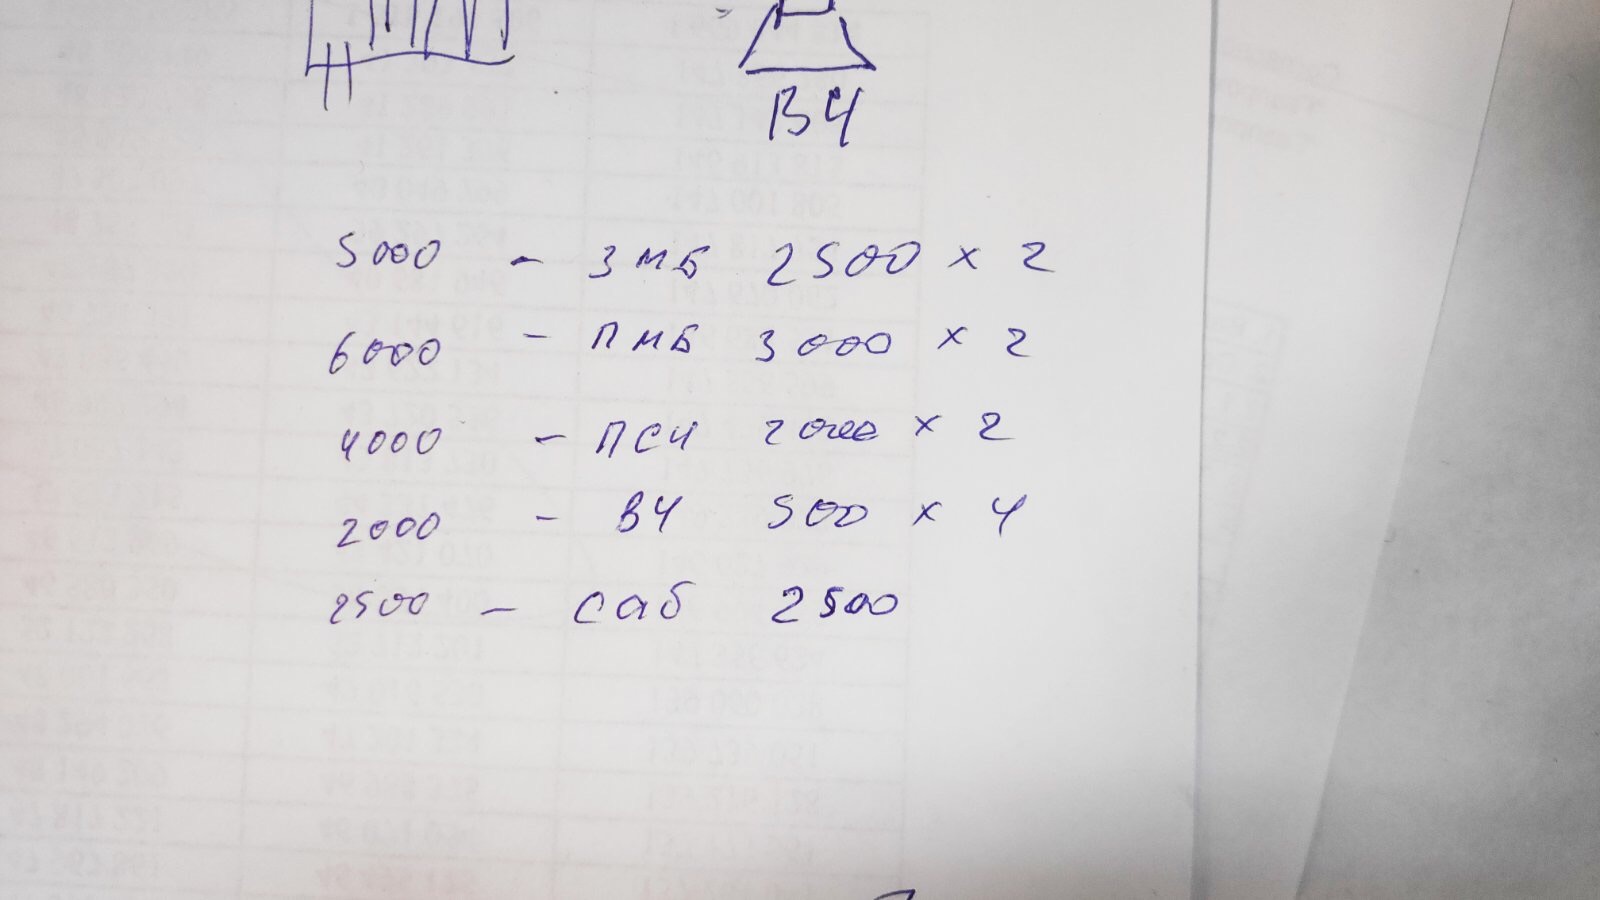 ВЧ
5000 - ЗМБ 2500 x 2
6000 - ПМБ 3000 x 2
4000 - ПСЧ 2000 x 2
2000 - ВЧ 500 x 4
2500 - саб 2500